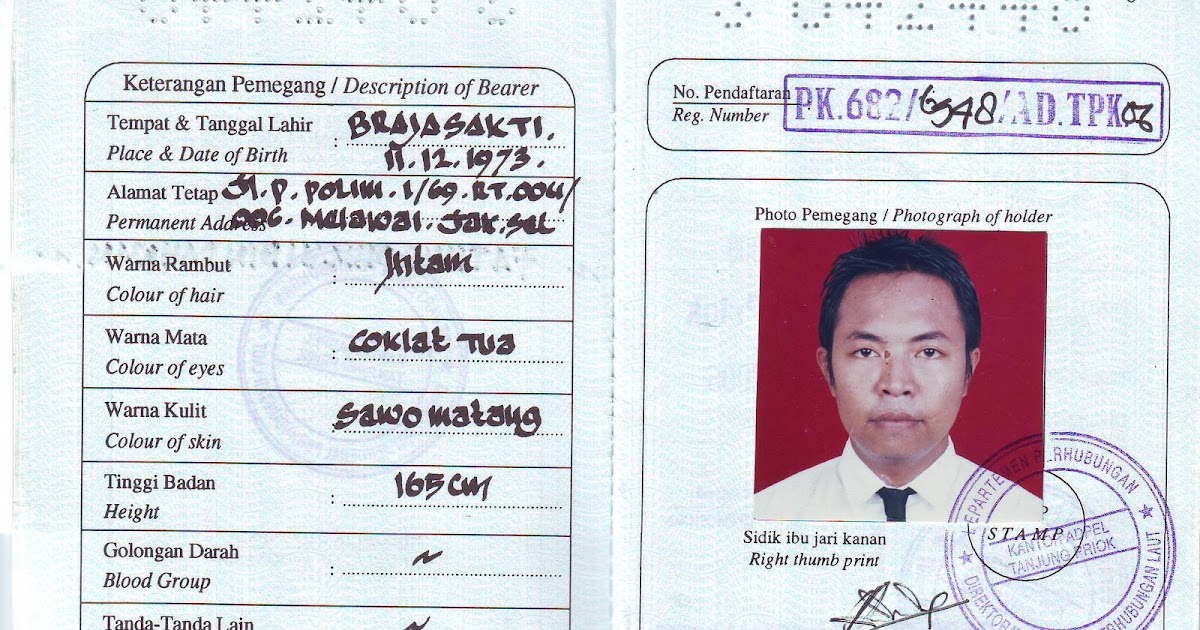 Keterangan Pemegang / Description of Bearer
Tempat & Tanggal Lahir : BRAJASAKTI.
Place & Date of Birth 11.12.1973.
Alamat Tetap Jl. P. POLIM. 1/69. RT.004/
Permanent Address 006. Melawai. Jak.Sel
Warna Rambut : Hitam
Colour of hair
Warna Mata : COKLAT TUA
Colour of eyes
Warna Kulit : Sawo matang
Colour of skin
Tinggi Badan : 165 cm
Height
Golongan Darah : ~
Blood Group
Tanda-Tanda Lain ~
No. Pendaftaran
Reg. Number
PK.682/6948/AD.TPK 08
Photo Pemegang / Photograph of holder
Sidik ibu jari kanan
Right thumb print
STAMP
DEPARTEMEN PERHUBUNGAN
KANTOR ADPEL
TANJUNG PRIOK
PERHUBUNGAN LAUT